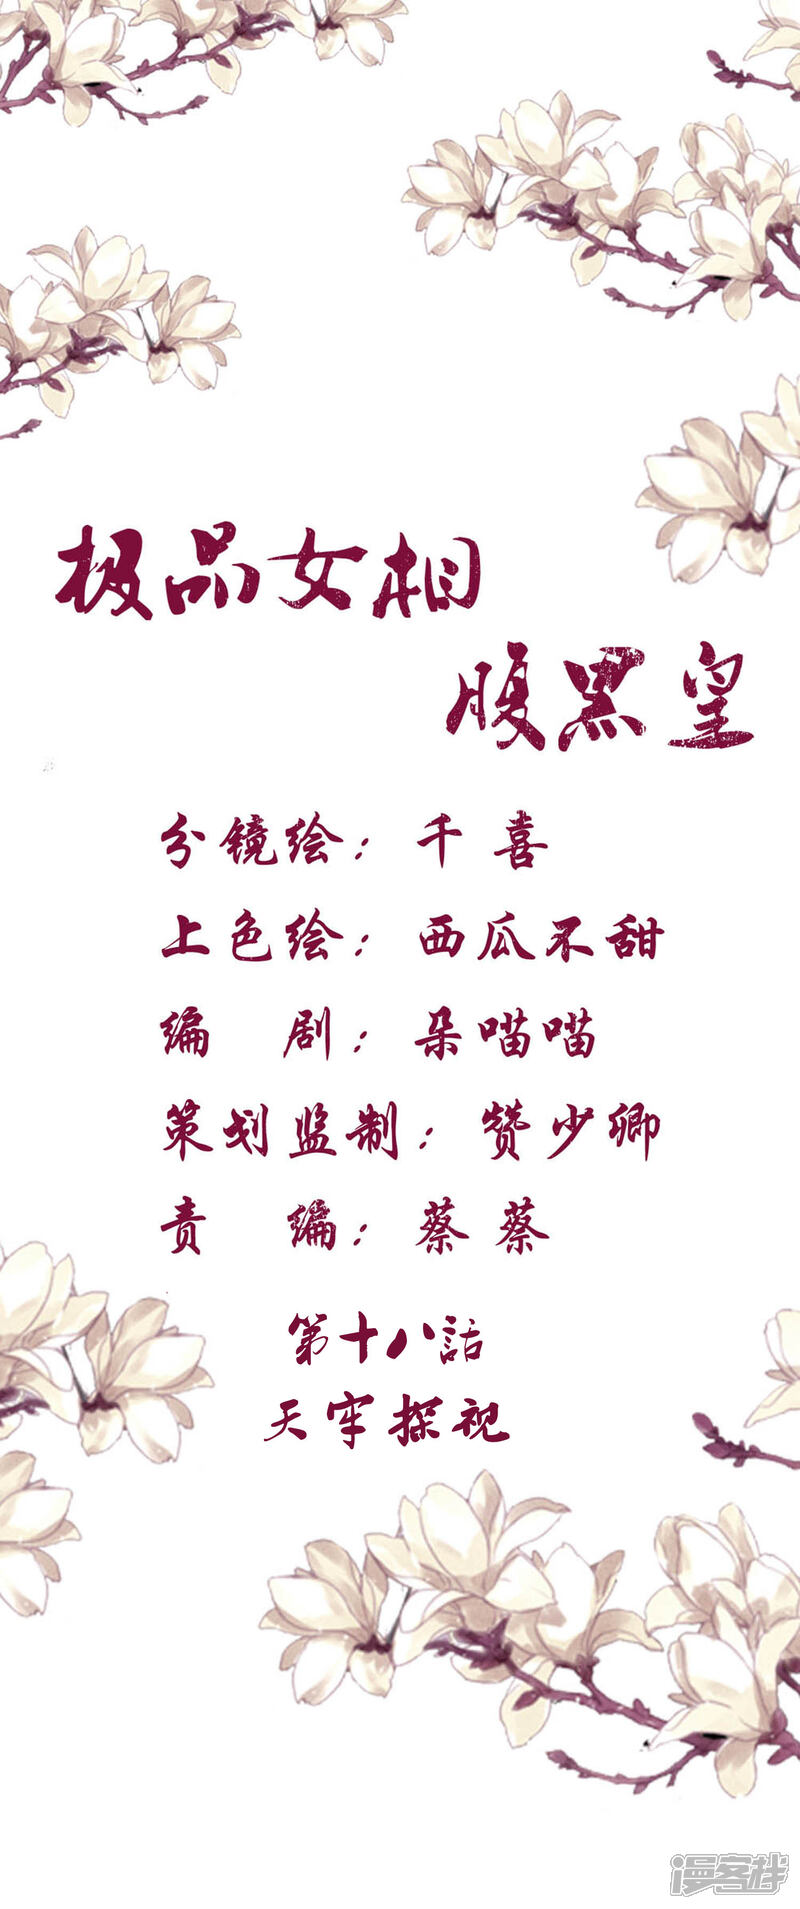 极品女相
腹黑皇
分镜绘：千喜
上色绘：西瓜不甜
编 剧：朵喵喵
策划监制：赞少卿
责 编：蔡蔡
第十八話
天牢探视
漫客栈